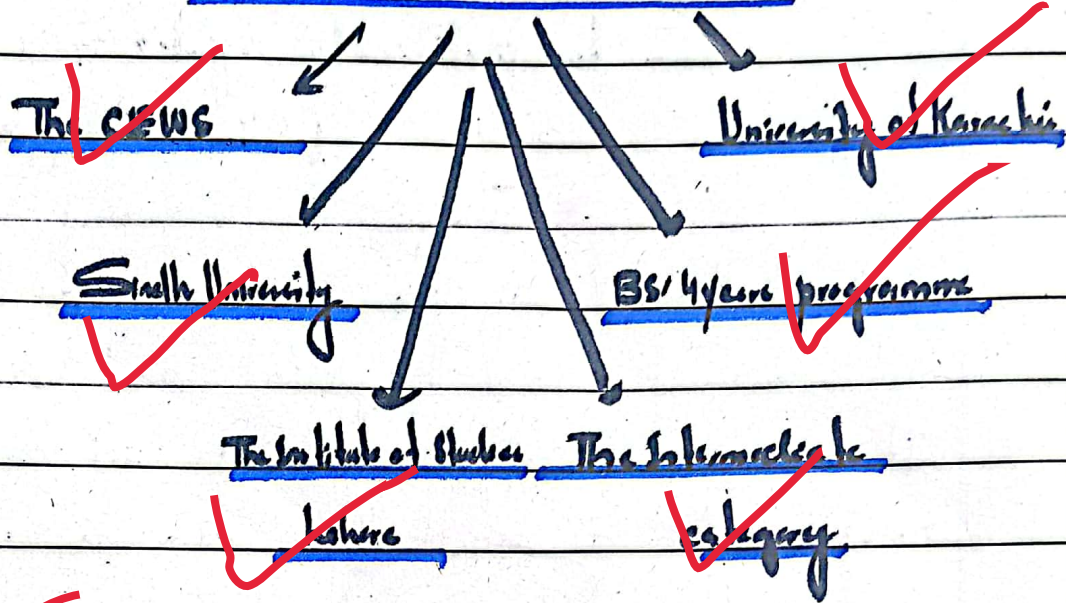 The CEWS
University of Karachi
Sindh University
BS/4years programme
The Institute of Studies
Lahore
The Intermediate
category